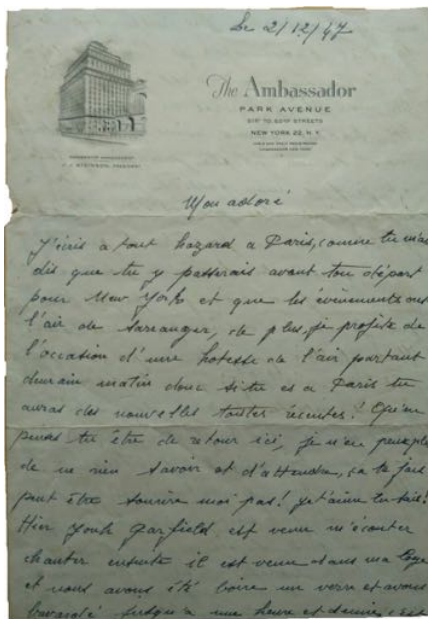 Le 2/12/47
The Ambassador
PARK AVENUE
51ST TO 52ND STREETS
NEW YORK 22, N.Y.
Mon adoré
J'écris a tout hazard a Paris, comme tu m'as
dis que tu y passerais avant ton départ
pour New York et que les évènements ont
l'air de s'arranger, de plus, je profite de
l'occasion d'une hotesse de l'air partant
demain matin donc si tu es a Paris tu
auras des nouvelles toutes récentes! Qu'en
peux tu être de retour ici, je n'en peux plus
de ne rien savoir et d'attendre, ça te fais
peut être sourire moi pas! je t'aime tu sais!
Hier John Garfield est venu m'écouter
chanter ensuite il est venu dans ma loge
et nous avons été boire un verre et avons
bavardé jusqu'a une heure et demie, c'est